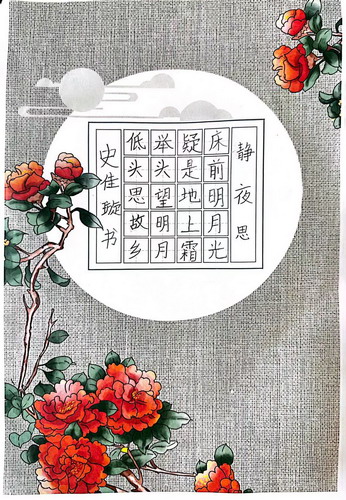 静夜思
床前明月光
疑是地上霜
举头望明月
低头思故乡
史佳璇书